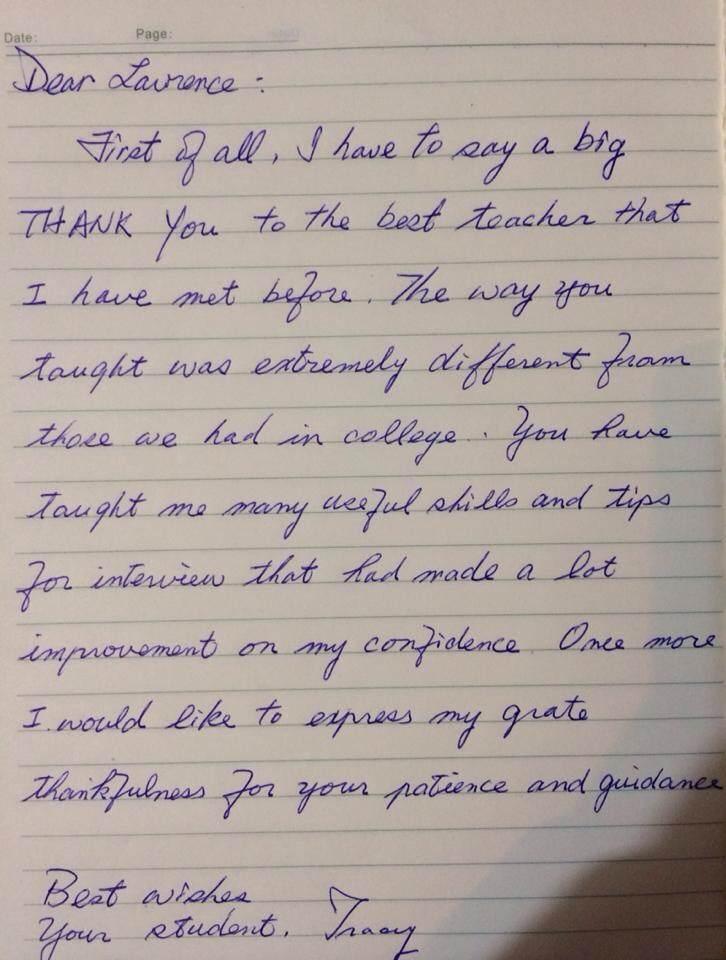 Date: Page:
Dear Lawrence:
First of all, I have to say a big
THANK You to the best teacher that
I have met before. The way you
taught was extremely different from
those we had in college. You have
taught me many useful skills and tips
for interview that had made a lot
improvement on my confidence. Once more
I would like to express my grate
thankfulness for your patience and guidance
Best wishes
Your student. Tracy